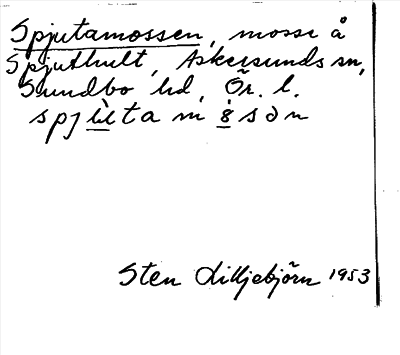 Spjutamossen, mosse å
Spjuthult, Askersunds sn,
Sundbo hd, Ör. l.
spjùtamåsən
Sten Liljebjörn 1953